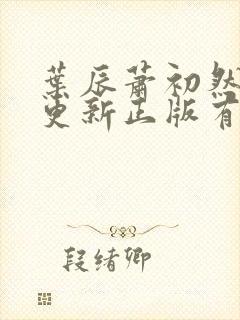 葉辰蕭初然
更新正版有
段绪卿